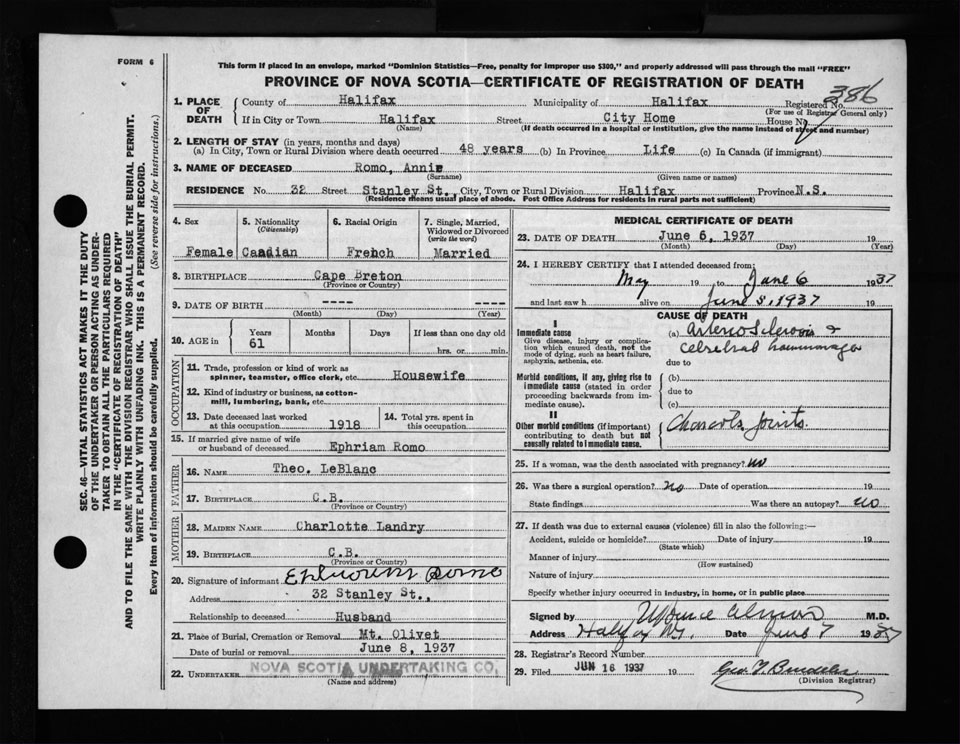 FORM 6
This form if placed in an envelope, marked "Dominion Statistics—Free, penalty for improper use $300," and properly addressed will pass through the mail "FREE"
PROVINCE OF NOVA SCOTIA—CERTIFICATE OF REGISTRATION OF DEATH
386
1. PLACE OF DEATH
County of Halifax Municipality of Halifax Registered No.
(For use of Registrar General only)
If in City or Town Halifax Street City Home House No.
(Name) (If death occurred in a hospital or institution, give the name instead of street and number)
2. LENGTH OF STAY (in years, months and days)
(a) In City, Town or Rural Division where death occurred 48 years (b) In Province Life (c) In Canada (if immigrant)
3. NAME OF DECEASED Romo, Annie
(Surname) (Given name or names)
RESIDENCE No. 32 Street Stanley St., City, Town or Rural Division Halifax Province N.S.
(Residence means usual place of abode. Post Office Address for residents in rural parts not sufficient)
4. Sex
Female
5. Nationality
(Citizenship)
Caadian
6. Racial Origin
French
7. Single, Married, Widowed or Divorced
(write the word)
Married
8. BIRTHPLACE Cape Breton
(Province or Country)
9. DATE OF BIRTH ---- ----
(Month) (Day) (Year)
10. AGE in
Years Months Days If less than one day old
61
hrs. or min.
OCCUPATION
11. Trade, profession or kind of work as
spinner, teamster, office clerk, etc. Housewife
12. Kind of industry or business, as cotton-
mill, lumbering, bank, etc.
13. Date deceased last worked
at this occupation 1918
14. Total yrs. spent in
this occupation
15. If married give name of wife
or husband of deceased Ephriam Romo
FATHER
16. NAME Theo. LeBlanc
17. BIRTHPLACE C.B.
(Province or Country)
MOTHER
18. MAIDEN NAME Charlotte Landry
19. BIRTHPLACE C.B.
(Province or Country)
20. Signature of informant
Address 32 Stanley St.,
Relationship to deceased Husband
21. Place of Burial, Cremation or Removal Mt. Olivet
Date of burial or removal June 8, 1937
22. UNDERTAKER NOVA SCOTIA UNDERTAKING CO.
(Name and address)
MEDICAL CERTIFICATE OF DEATH
23. DATE OF DEATH June 6, 1937 19
(Month) (Day) (Year)
24. I HEREBY CERTIFY that I attended deceased from:
May 19 to June 6 1937
and last saw h alive on June 5, 1937 19
CAUSE OF DEATH
I
Immediate cause
Give disease, injury or complica-
tion which caused death, not the
mode of dying, such as heart failure,
asphyxia, asthenia, etc.
(a) Arterio Sclerosis &
Celrebral
due to
Morbid conditions, if any, giving rise to
immediate cause (stated in order
proceeding backwards from im-
mediate cause).
(b)
due to
(c)
II
Other morbid conditions (if important)
contributing to death but not
causally related to immediate cause.
Charcots Joints
25. If a woman, was the death associated with pregnancy? no
26. Was there a surgical operation? no Date of operation 19
State findings Was there an autopsy? no
27. If death was due to external causes (violence) fill in also the following:—
Accident, suicide or homicide? Date of injury 19
(State which)
Manner of injury
(How sustained)
Nature of injury
Specify whether injury occurred in industry, in home, or in public place
Signed by M.D.
Address Halifax N.S. Date June 7 1937
28. Registrar's Record Number
29. Filed JUN 16 1937 19
(Division Registrar)
SEC. 46—VITAL STATISTICS ACT MAKES IT THE DUTY
OF THE UNDERTAKER OR PERSON ACTING AS UNDER-
TAKER TO OBTAIN ALL THE PARTICULARS REQUIRED
IN THE "CERTIFICATE OF REGISTRATION OF DEATH"
AND TO FILE THE SAME WITH THE DIVISION REGISTRAR WHO SHALL ISSUE THE BURIAL PERMIT.
WRITE PLAINLY WITH UNFADING INK. THIS IS A PERMANENT RECORD.
Every item of information should be carefully supplied. (See reverse side for instructions.)